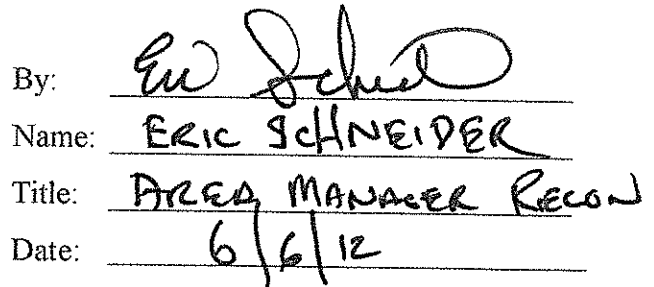 By: Eric Schneid
Name: ERIC SCHNEIDER
Title: AREA MANAGER RECON
Date: 6/6/12